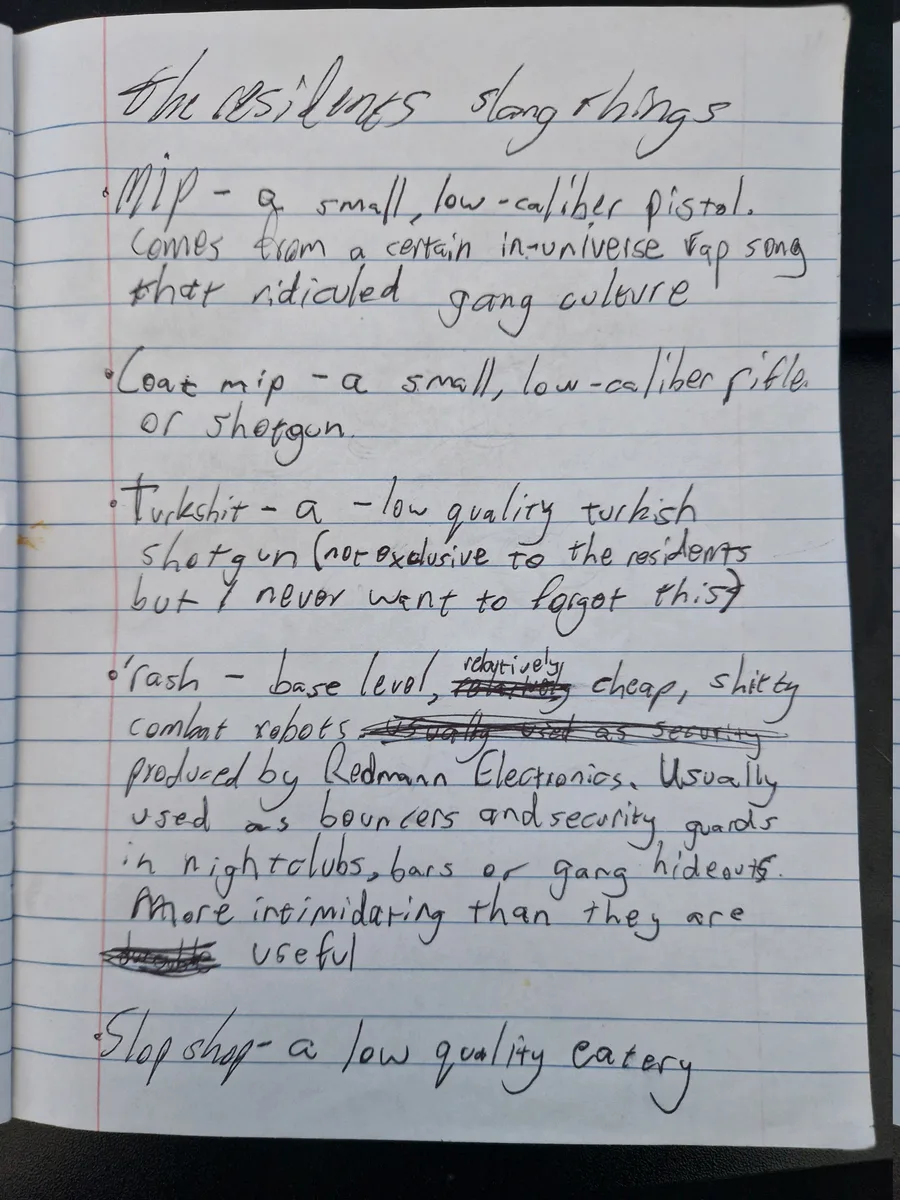 the residents slang things
• Mip - a small, low-caliber pistol.
comes from a certain in-universe rap song
that ridiculed gang culture
• Coat mip - a small, low-caliber rifle
or shotgun.
• Turkshit - a -low quality turkish
shotgun (not exclusive to the residents
but I never want to forget this)
• 'rash - base level, relatively cheap, shitty
combat robots usually used as security
produced by Redmann Electronics. Usually
used as bouncers and security guards
in nightclubs, bars or gang hideouts.
More intimidating than they are
useful
• Slop shop - a low quality eatery